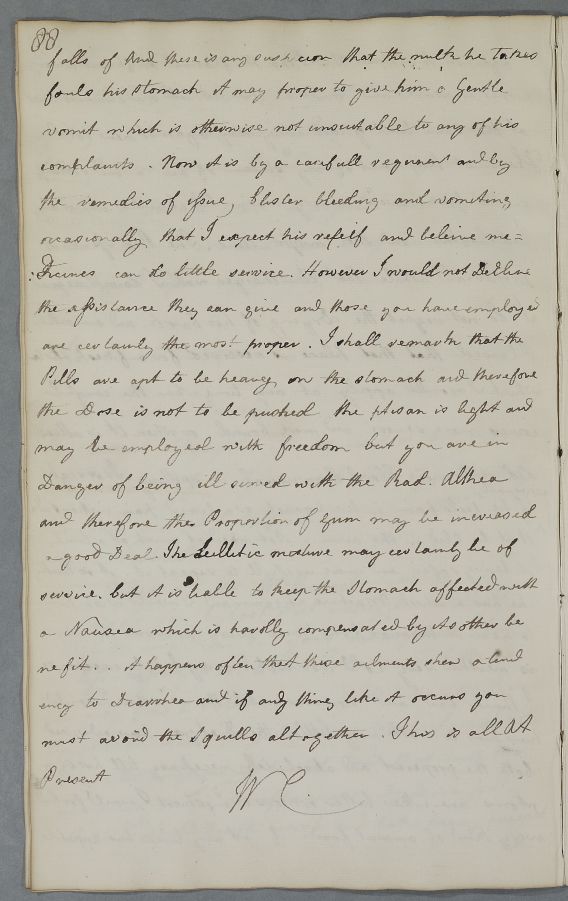 88
falls of And there is any suspicion that the milk he takes
fouls his stomach it may proper to give him a Gentle
vomit which is otherwise not unsuitable to any of his
complaints. Now it is by a carefull regimen and by
the remedies of issue, blister bleeding and vomiting
occasionally that I expect his releif and beleive me=
:dicines can do little service. However I would not Decline
the assistance they can give and those you have employed
are certainly the most proper. I shall remark that the
Pills are apt to be heavy on the stomach and therefore
the Dose is not to be pushed the ptisan is light and
may be employed with freedom but you are in
Danger of being ill served with the Rad. Althea
and therefore the Proportion of gum may be increased
a good Deal. The mixture may certainly be of
service. but it is liable to keep the Stomach affected with
a Nausea which is hardly compensated by its other be
nefit.. it happens often that these ailments shew a tend
ency to Diarrhea and if any thing like it occurs you
must avoid the Squills altogether. This is all At
Present
WC